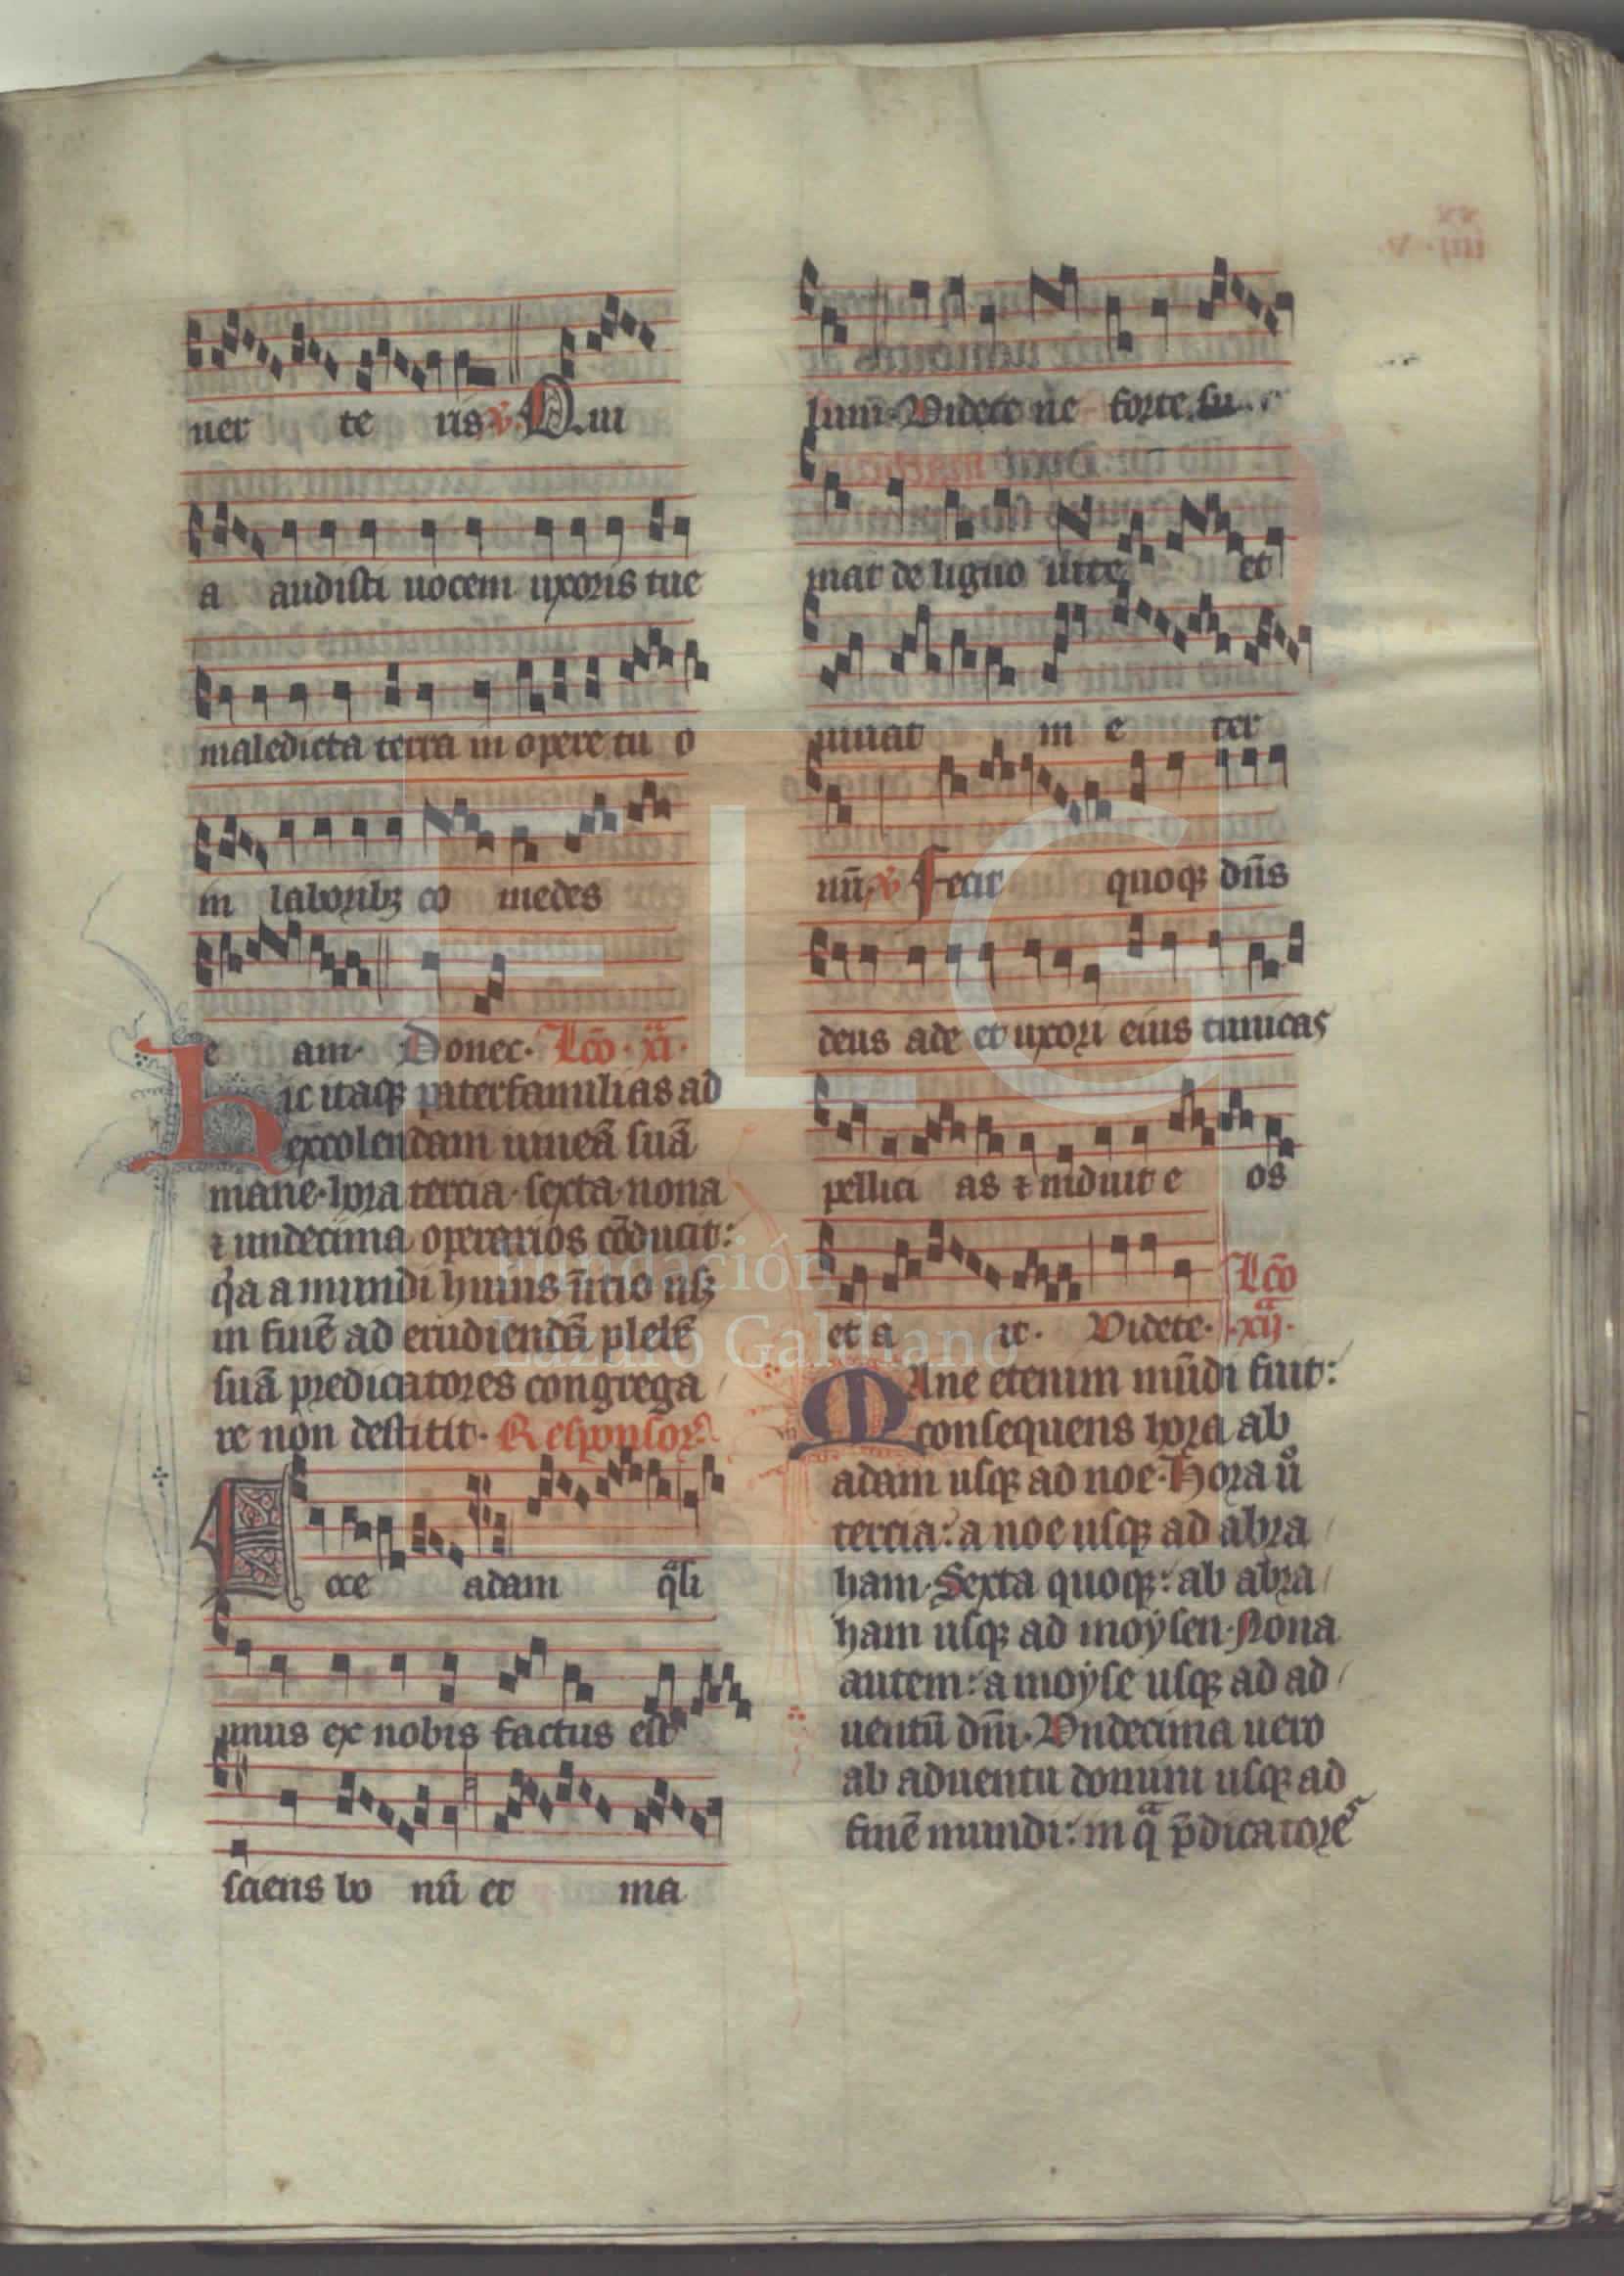 uer te ris ℣. Qui
a audisti uocem uxoris tue
maledicta terra in opere tu o
in laboribꝫ co medes
e am. Donec. Lcō. xi.
Hic itaqꝫ paterfamilias ad
excolendam uineā suā
mane. hora tercia. sexta. nona
⁊ undecima operarios cōducit:
qͥa a mundi huius īitio usqꝫ
in finē ad erudiendā plebē
suā predicatores congrega
re non destitit. Responsor
Ecce adam qͣsi
unus ex nobis factus est
sciens bo nū et ma
lum. Videte ne forte su
mat de ligno uite et
uiuat in e ter
nū. ℣ Fecit quoqꝫ dn̄s
deus ade et uxori eius tunicas
pellici as ⁊ induit e os
et a it. Videte. Lcō
.xij.
Mane etenim mūdi fuit:
consequens hora ab
adam usqꝫ ad noe. Hora uͦ
tercia: a noe usqꝫ ad abra
ham. Sexta quoqꝫ: ab abra
ham usqꝫ ad moysen. Nona
autem: a moyse usqꝫ ad ad
uentū dn̄i. Vndecima uero
ab aduentu domini usqꝫ ad
finē mundi: in qͣ p̄dicatores
FLG
Fundación
Lázaro Galdiano